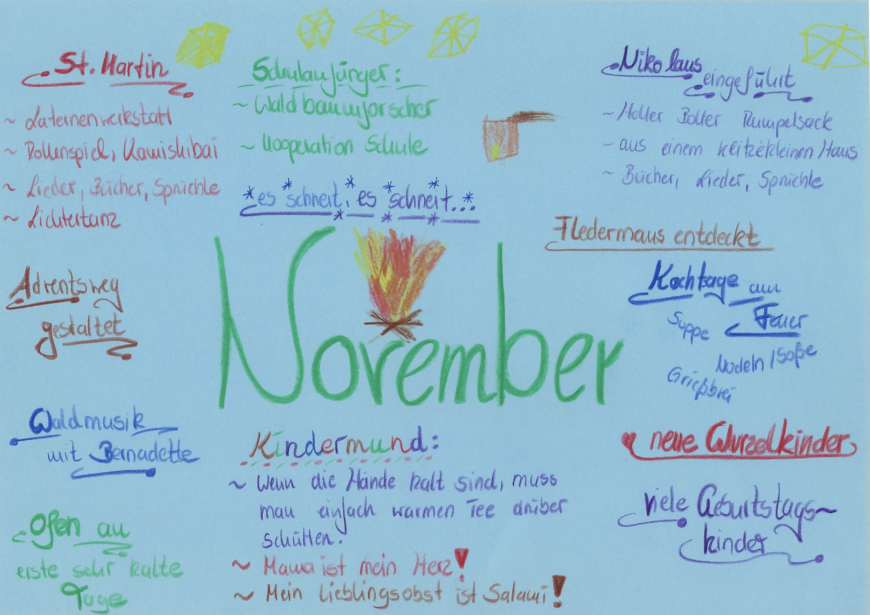 St. Martin
~ Laternenwerkstatt
~ Rollenspiel, Kamishibai
~ Lieder, Bücher, Sprüchle
~ Lichtertanz
Schulanfänger:
~ Waldbaumforscher
~ Kooperation Schule
*es schneit, es schneit...*
Nikolaus
eingeführt
~ Holler Boller Rumpelsack
~ aus einem klitzekleinen Haus
~ Bücher, Lieder, Sprüchle
Fledermaus entdeckt
Adventsweg
gestaltet
November
Kochtage am
Feuer
Suppe
Nudeln/Soße
Grießbrei
Waldmusik
mit Bernadette
Kindermund:
~ Wenn die Hände kalt sind, muss
man einfach warmen Tee drüber
schütten.
~ Mama ist mein Herz!
~ Mein Lieblingsobst ist Salami!
neue Wurzelkinder
viele Geburtstags~
kinder
Ofen an
erste sehr kalte
Tage